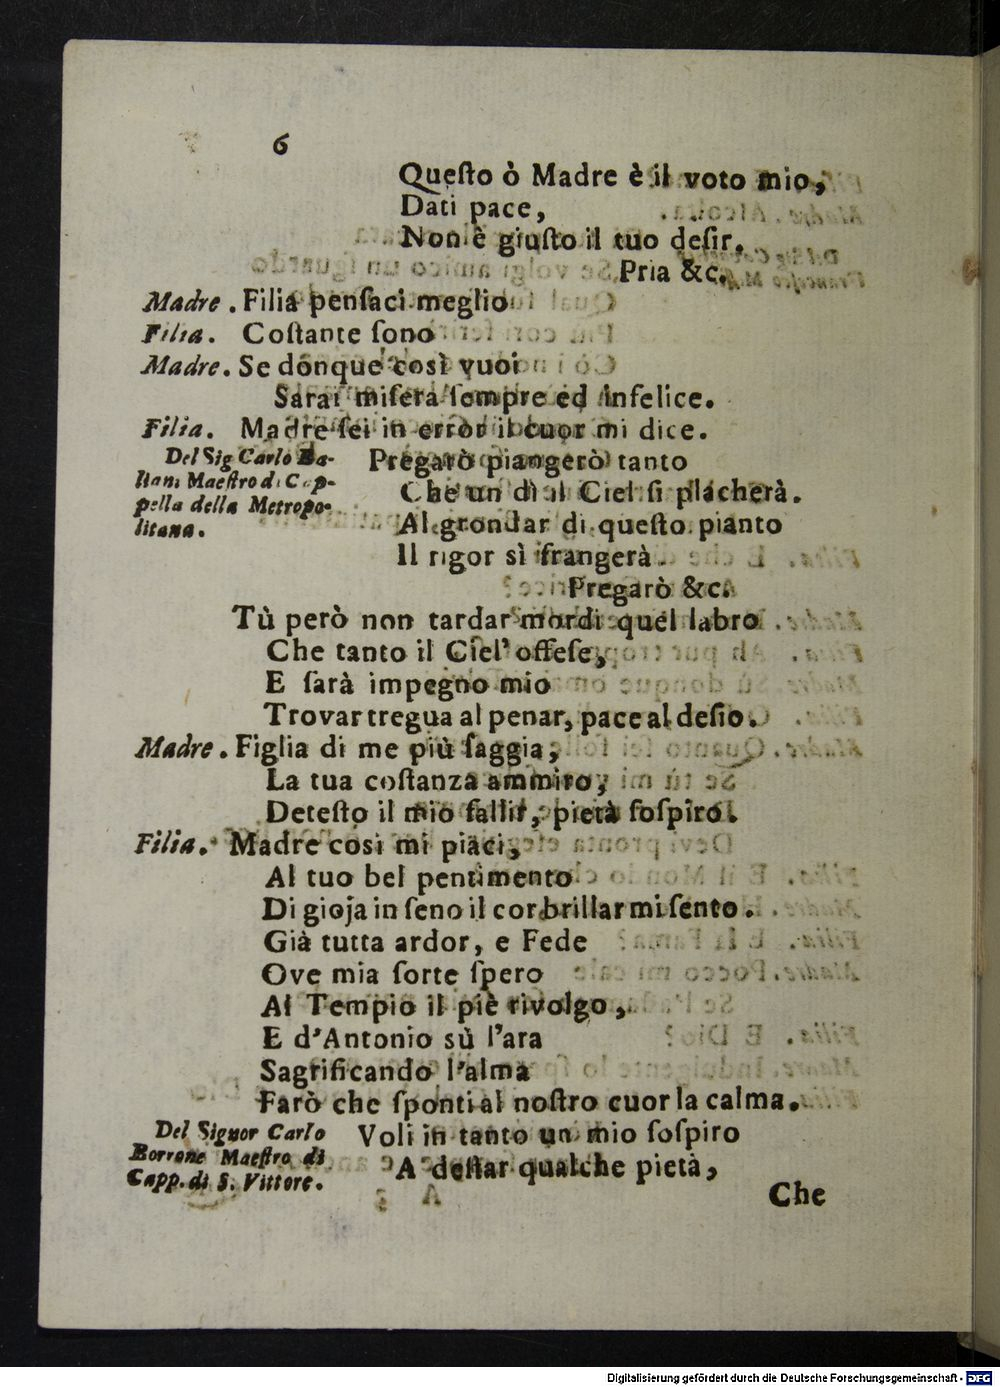 6
Queſto ò Madre è il voto mio,
Dati pace,
Non è giuſto il tuo deſir.
Pria &c.
Madre. Filia penſaci meglio
Filia. Coſtante ſono
Madre. Se donque così vuoi
Sarai miſera ſempre ed infelice.
Filia. Madre ſei in error il cuor mi dice.
Del Sig Carlo Ba-
liani Maeſtro di Cap-
pella della Metropo-
litana.
Pregarò piangerò tanto
Che un dì al Ciel ſi placherà.
Al grondar di queſto pianto
Il rigor sì frangerà.
Pregarò &c.
Tù però non tardar mordi quel labro
Che tanto il Ciel' offeſe,
E ſarà impegno mio
Trovar tregua al penar, pace al deſio.
Madre. Figlia di me più ſaggia,
La tua coſtanza ammiro,
Deteſto il mio fallir, pietà ſoſpiro.
Filia. Madre cosi mi piaci,
Al tuo bel pentimento
Di gioja in ſeno il cor brillar mi ſento.
Già tutta ardor, e Fede
Ove mia ſorte ſpero
Al Tempio il piè rivolgo,
E d'Antonio sù l'ara
Sagrificando l'alma
Farò che ſponti al noſtro cuor la calma.
Del Signor Carlo
Borrone Maeſtro di
Capp. di S. Vittore.
Voli in tanto un mio ſoſpiro
A deſtar qualche pietà,
Che
Digitalisierung gefördert durch die Deutsche Forschungsgemeinschaft - DFG